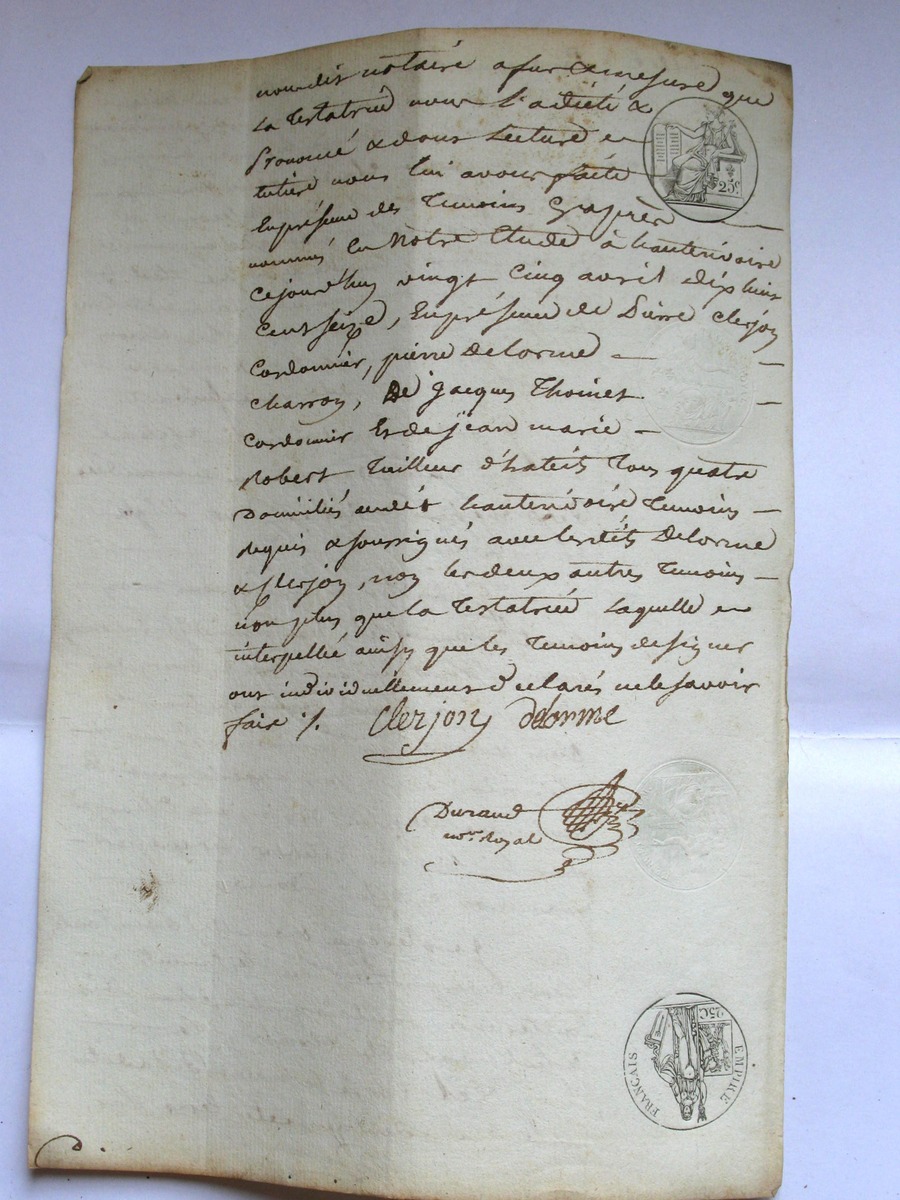 nousdit notaire a fur & mesure que
La Testatrice nous l'a dicté &
Prononcé & dont Lecture en
entier nous lui avons faite
En présence des Temoins Cy après
nommés En Notre Etude à hauterivoire
Cejourd'huy vingt Cinq avril dix huit
Cent seize, En présence de Pierre Clerjon
Cordonnier, pierre Delorme
Charron, De Jacques Thoinet
Cordonnier Et de jean marie
Robert Tailleur d'habits Tous quatre
Domiciliés audit hauterivoire Temoins
requis & soussignés avec lesdits Delorme
& Clerjon, non les deux autres Temoins
non plus que la Testatrice Laquelle en
interpellée ainsy que les Temoins de signer
ont individuellement declarés ne le savoir
faire ./.
Clerjon delorme
Durand
no.re Royal
25c.
25C
EMPIRE
FRANÇAIS